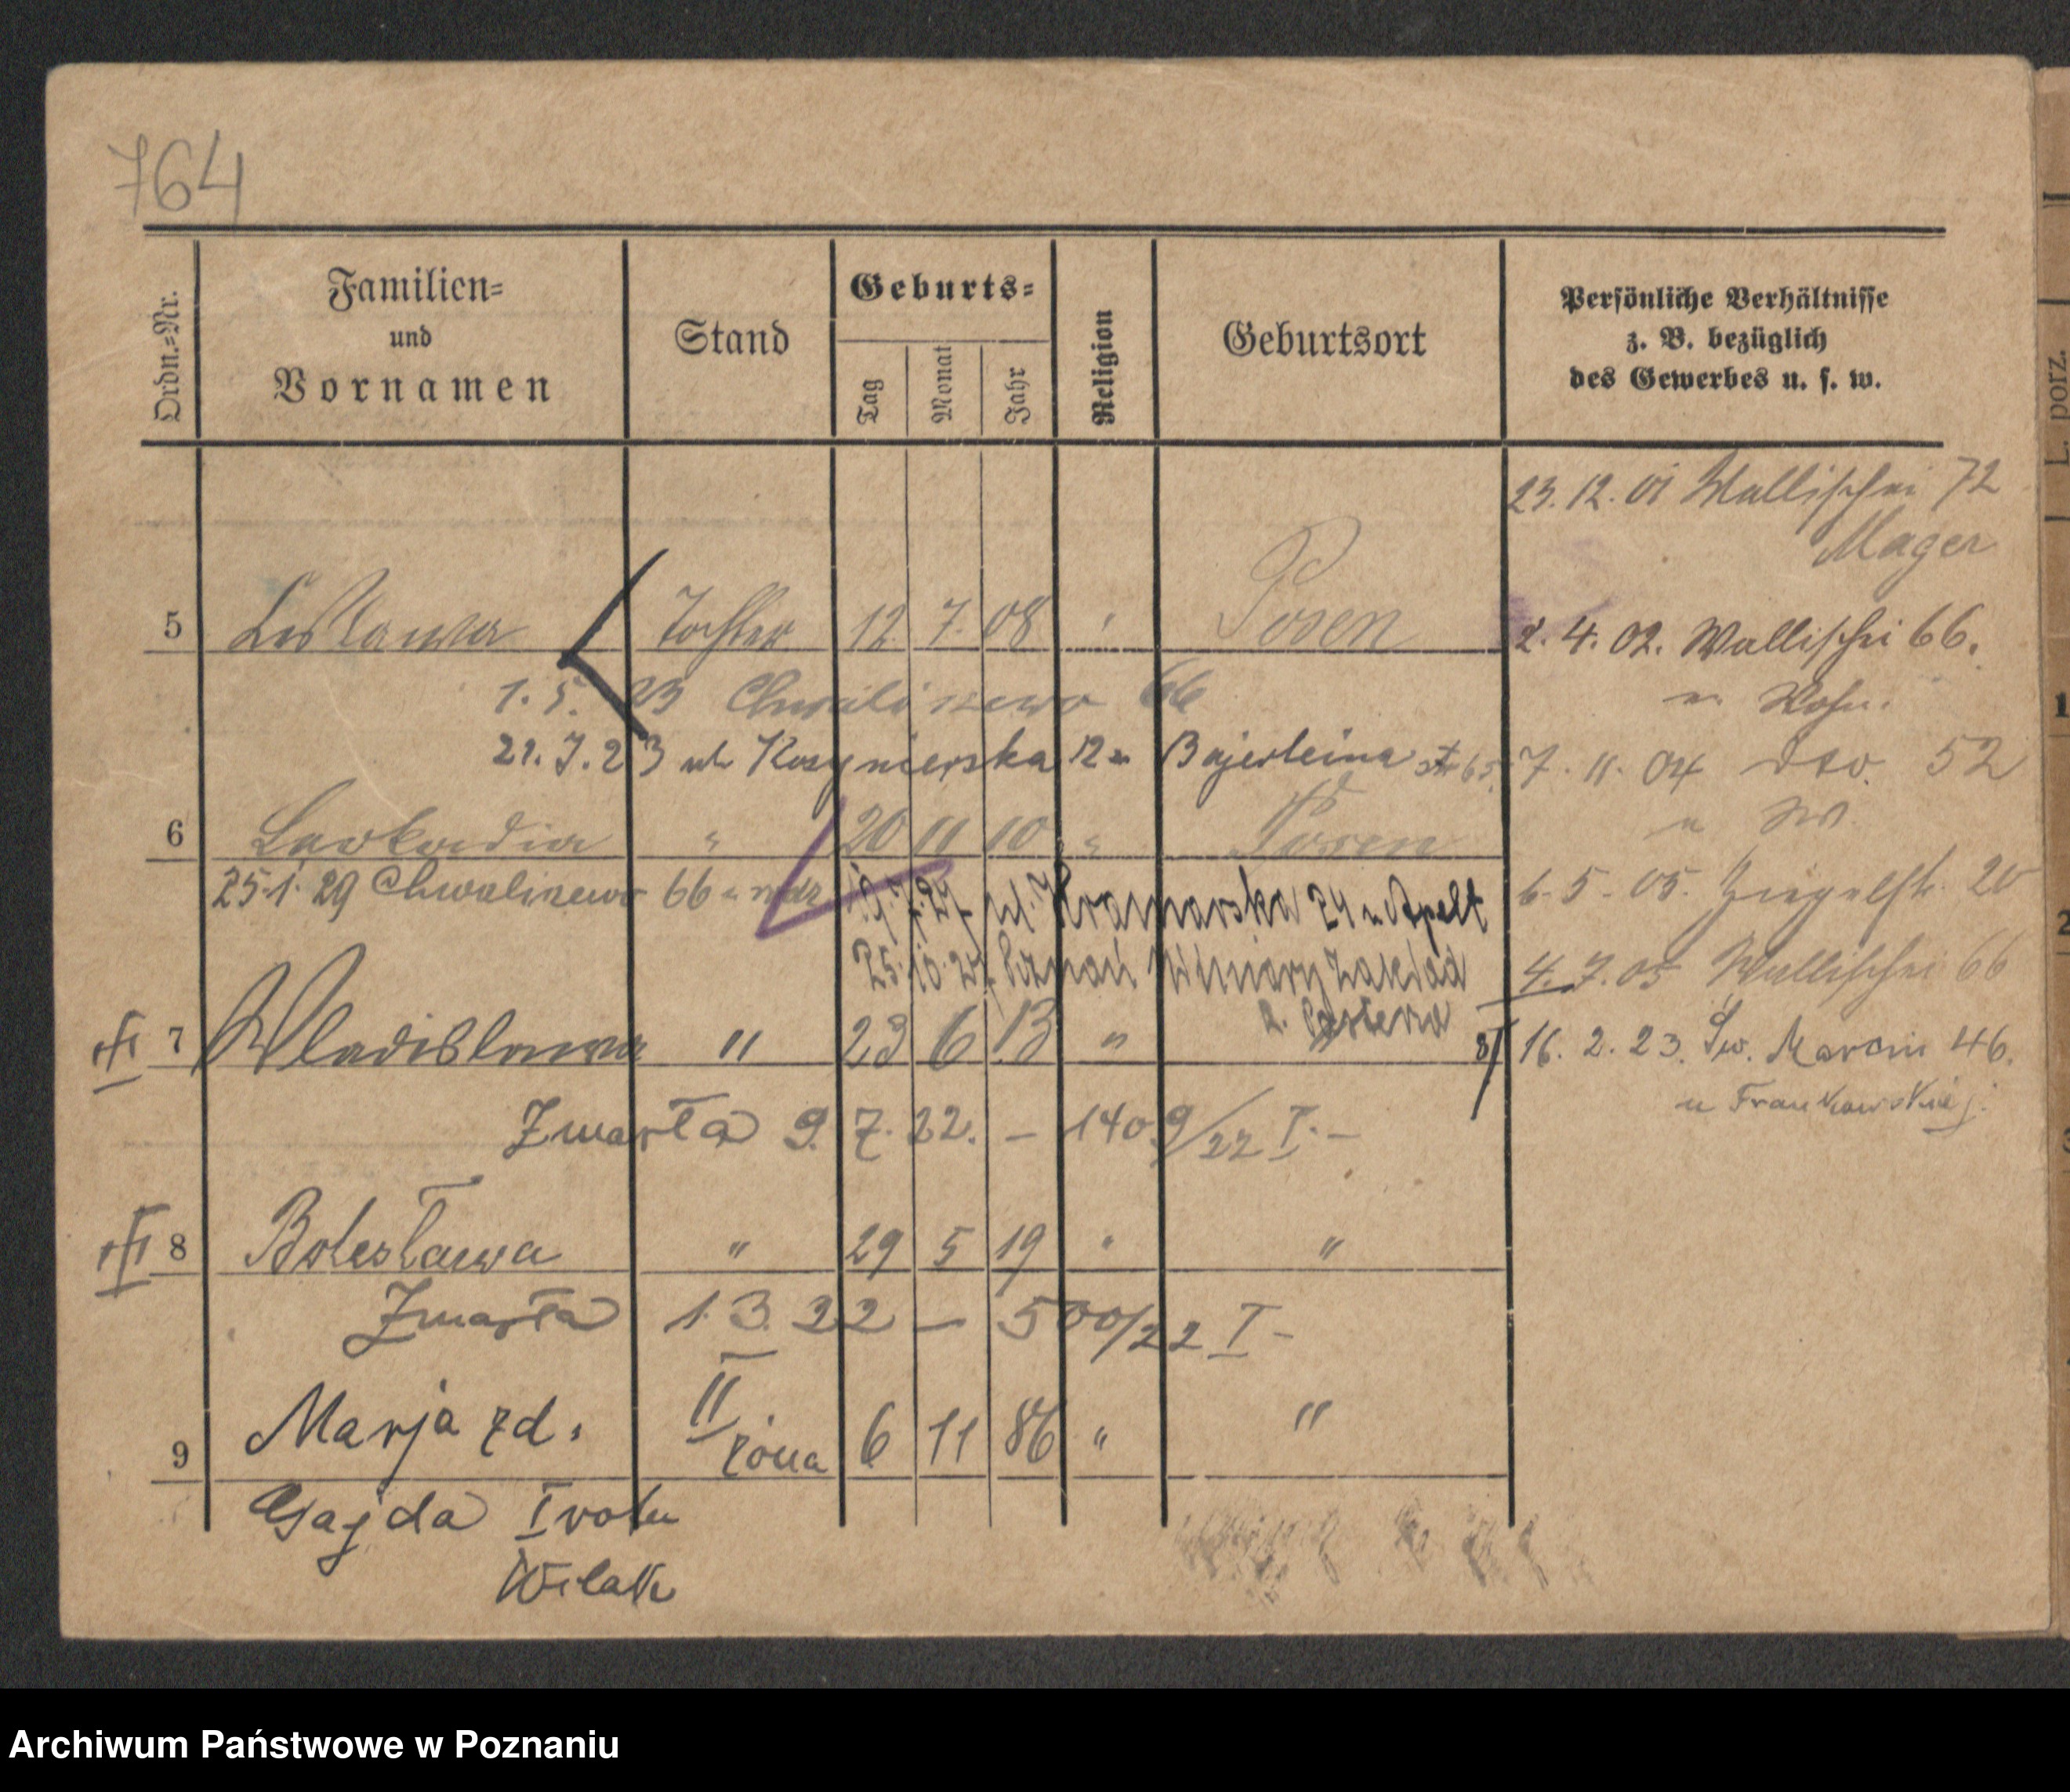 764
Ordn.-Nr.
Familien-
und
Vornamen
Stand
Geburts-
Tag
Monat
Jahr
Religion
Geburtsort
Persönliche Verhältnisse
z. B. bezüglich
des Gewerbes u. s. w.
23. 12. 01 Wallischei 72
Mager
5 Lesława Tochter 12. 7. 08 " Posen
2. 4. 02. Wallischei 66.
1. 5. 23 Chwaliszewo 66
21. 7. 23 Kosynierska 12 Bajerleina
7. 11. 04 dto. 52
6 Leokadia " 20 11 10 " Posen
25. 1. 29 Chwaliszewo 66
Kramarska 24 u Apelt
6. 5. 05. Ziegelstr. 20
Poznań Zakład
4. 7. 05 Wallischei 66
7 Wladislawa " 23 6 13 " "
16. 2. 23. Św. Marcin 46.
u Frankowskiej.
Zmarła 9. 7. 22. – 1409/22 I. –
8 Bolesława " 29 5 19 " "
Zmarła 1. 3. 22 – 500/22 I –
9 Marja zd. II żona 6 11 86 " "
Gajda I voto
Wilak
L. porz.
Archiwum Państwowe w Poznaniu